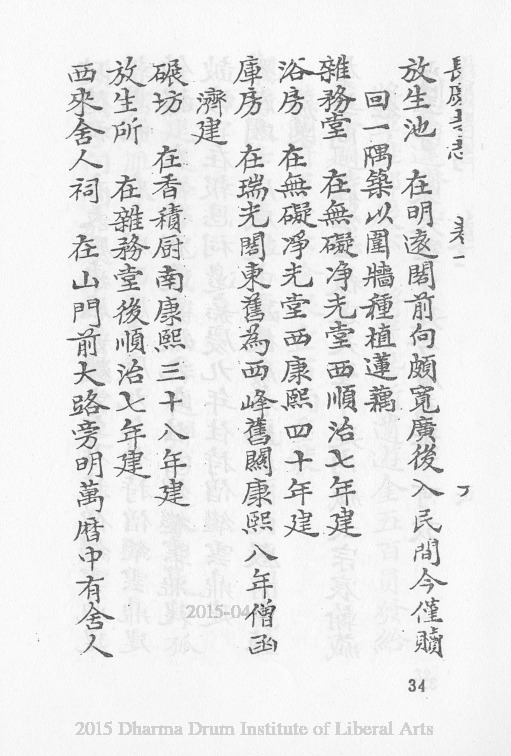 長慶寺志 卷一
放生池 在明遠閣前向頗寬廣後入民間今僅贖
回一隅築以圍牆種植蓮藕
雜務堂 在無礙淨光堂西順治七年建
浴房 在無礙淨光堂西康熙四十年建
庫房 在瑞光閣東舊為西峰舊關康熙八年僧函
濟建
碾坊 在香積厨南康熙三十八年建
放生所 在雜務堂後順治七年建
西來舍人祠 在山門前大路旁明萬曆中有舍人
34
2015-04
2015 Dharma Drum Institute of Liberal Arts